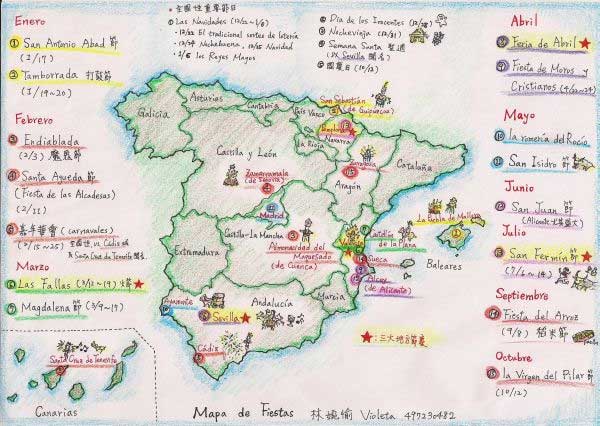 Enero
① San Antonio Abad 節
(1/17)
② Tamborrada 打鼓節
(1/19~20)
Febrero
③ Endiablada
(2/3) 魔鬼節
④ Santa Agueda 節
(Fiesta de las Alcadesas)
(2/11)
⑤ 嘉年華會 (carnavales)
(2/15~25)
Marzo
⑥ Las Fallas (3/12~19)
⑦ Magdalena 節 (3/9~17)
* 全國性重要節日
① Las Navidades (12/22~1/6)
- 12/22 El tradicional sorteo de lotería
- 12/24 Nochebuena, 12/25 Navidad
- 1/5 los Reyes Magos
② Día de los Inocentes (12/28)
③ Nochevieja (12/31)
④ Semana Santa 聖週
(以 Sevilla 聞名)
⑤ 國慶日 (10/12)
Abril
⑧ Feria de Abril ★
⑨ Fiesta de Moros y
Cristianos (4/22~24)
Mayo
⑩ la romería del Rocío
⑪ San Isidro 節
Junio
⑫ San Juan 節
Julio
⑬ San Fermín 節 ★
(7/6~14)
Septiembre
⑭ Fiesta del Arroz
(9/8) 稻米節
Octubre
⑮ la Virgen del Pilar 節
(10/12)
Galicia
Asturias
Cantabria
País Vasco
San Sebastián
(de Guipúzcoa)
Navarra
La Rioja
Castilla y León
Zamarramala
(de Segovia)
Zaragoza
Aragón
Cataluña
Madrid
Castilla-La Mancha
Almonacid del
Marquesado
(de Cuenca)
Castellón
de la Plana
La Puebla de Mallorca
Baleares
Sueca
Alcoy
(de Alicante)
Extremadura
Murcia
Andalucía
Almonte
Sevilla ★
Cádiz
Santa Cruz de Tenerife
Canarias
★:三大地方節慶
Mapa de Fiestas 林婉愉 Violeta 497230482